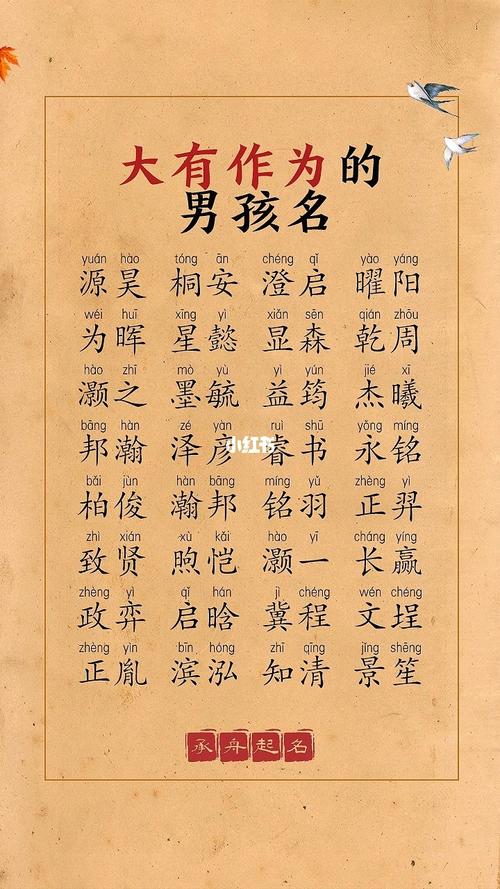 大有作为的
男孩名
yuán hào tóng ān chéng qǐ yào yáng
源昊 桐安 澄启 曜阳
wéi huī xīng yì xiǎn sēn qián zhōu
为晖 星懿 显森 乾周
hào zhī mò yù yì yún jié xī
灏之 墨毓 益筠 杰曦
bāng hàn zé yàn ruì shū yǒng míng
邦瀚 泽彦 睿书 永铭
小红书
bǎi jùn hàn bāng míng yǔ zhèng yì
柏俊 瀚邦 铭羽 正羿
zhì xián xù kǎi hào yī cháng yíng
致贤 煦恺 灏一 长赢
zhèng yì qǐ hán jì chéng wén chéng
政弈 启晗 冀程 文埕
zhèng yìn bīn hóng zhī qīng jǐng shēng
正胤 滨泓 知清 景笙
承舟起名